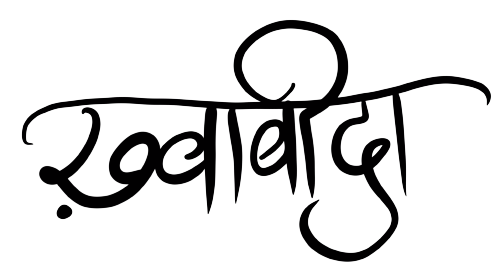 ख़्वाबीदा